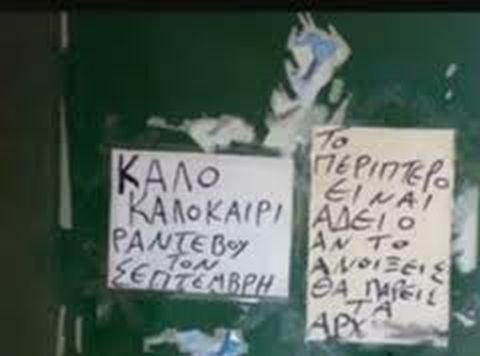 ΚΑΛΟ
ΚΑΛΟΚΑΙΡΙ
ΡΑΝΤΕΒΟΥ
ΤΟΝ
ΣΕΠΤΕΜΒΡΗ
ΤΟ
ΠΕΡΙΠΤΕΡΟ
ΕΙΝΑΙ
ΑΔΕΙΟ
ΑΝ ΤΟ
ΑΝΟΙΞΕΙΣ
ΘΑ ΠΑΡΕΙΣ
ΤΑ
ΑΡΧ